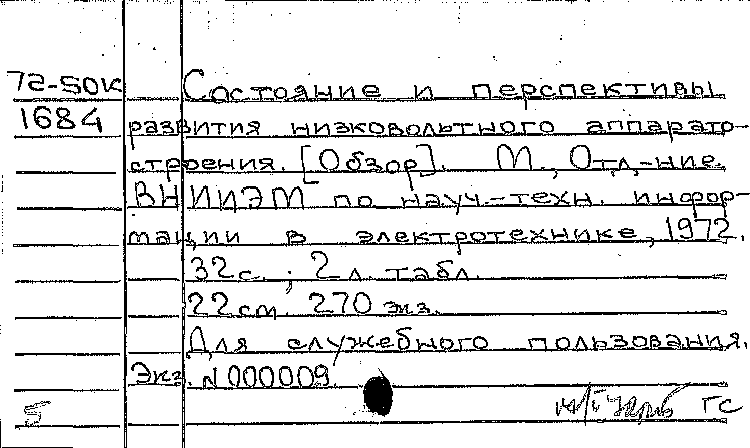 72-50к Состояние и перспективы
1684 развития низковольтного аппарато-
строения. [Обзор]. М., Отд-ние
ВНИИЭМ по науч-техн. инфор-
мации в электротехнике, 1972.
32с.; 2л. табл.
22см. 270 экз.
Для служебного пользования.
Экз. N000009.
5 ГС